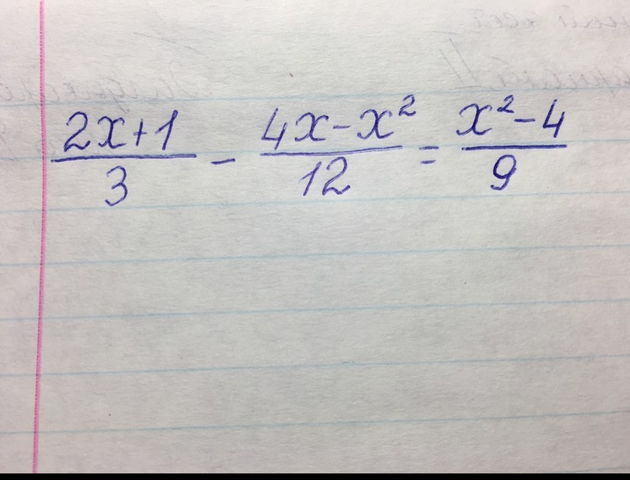 (2x+1)/3 - (4x-x²)/12 = (x²-4)/9